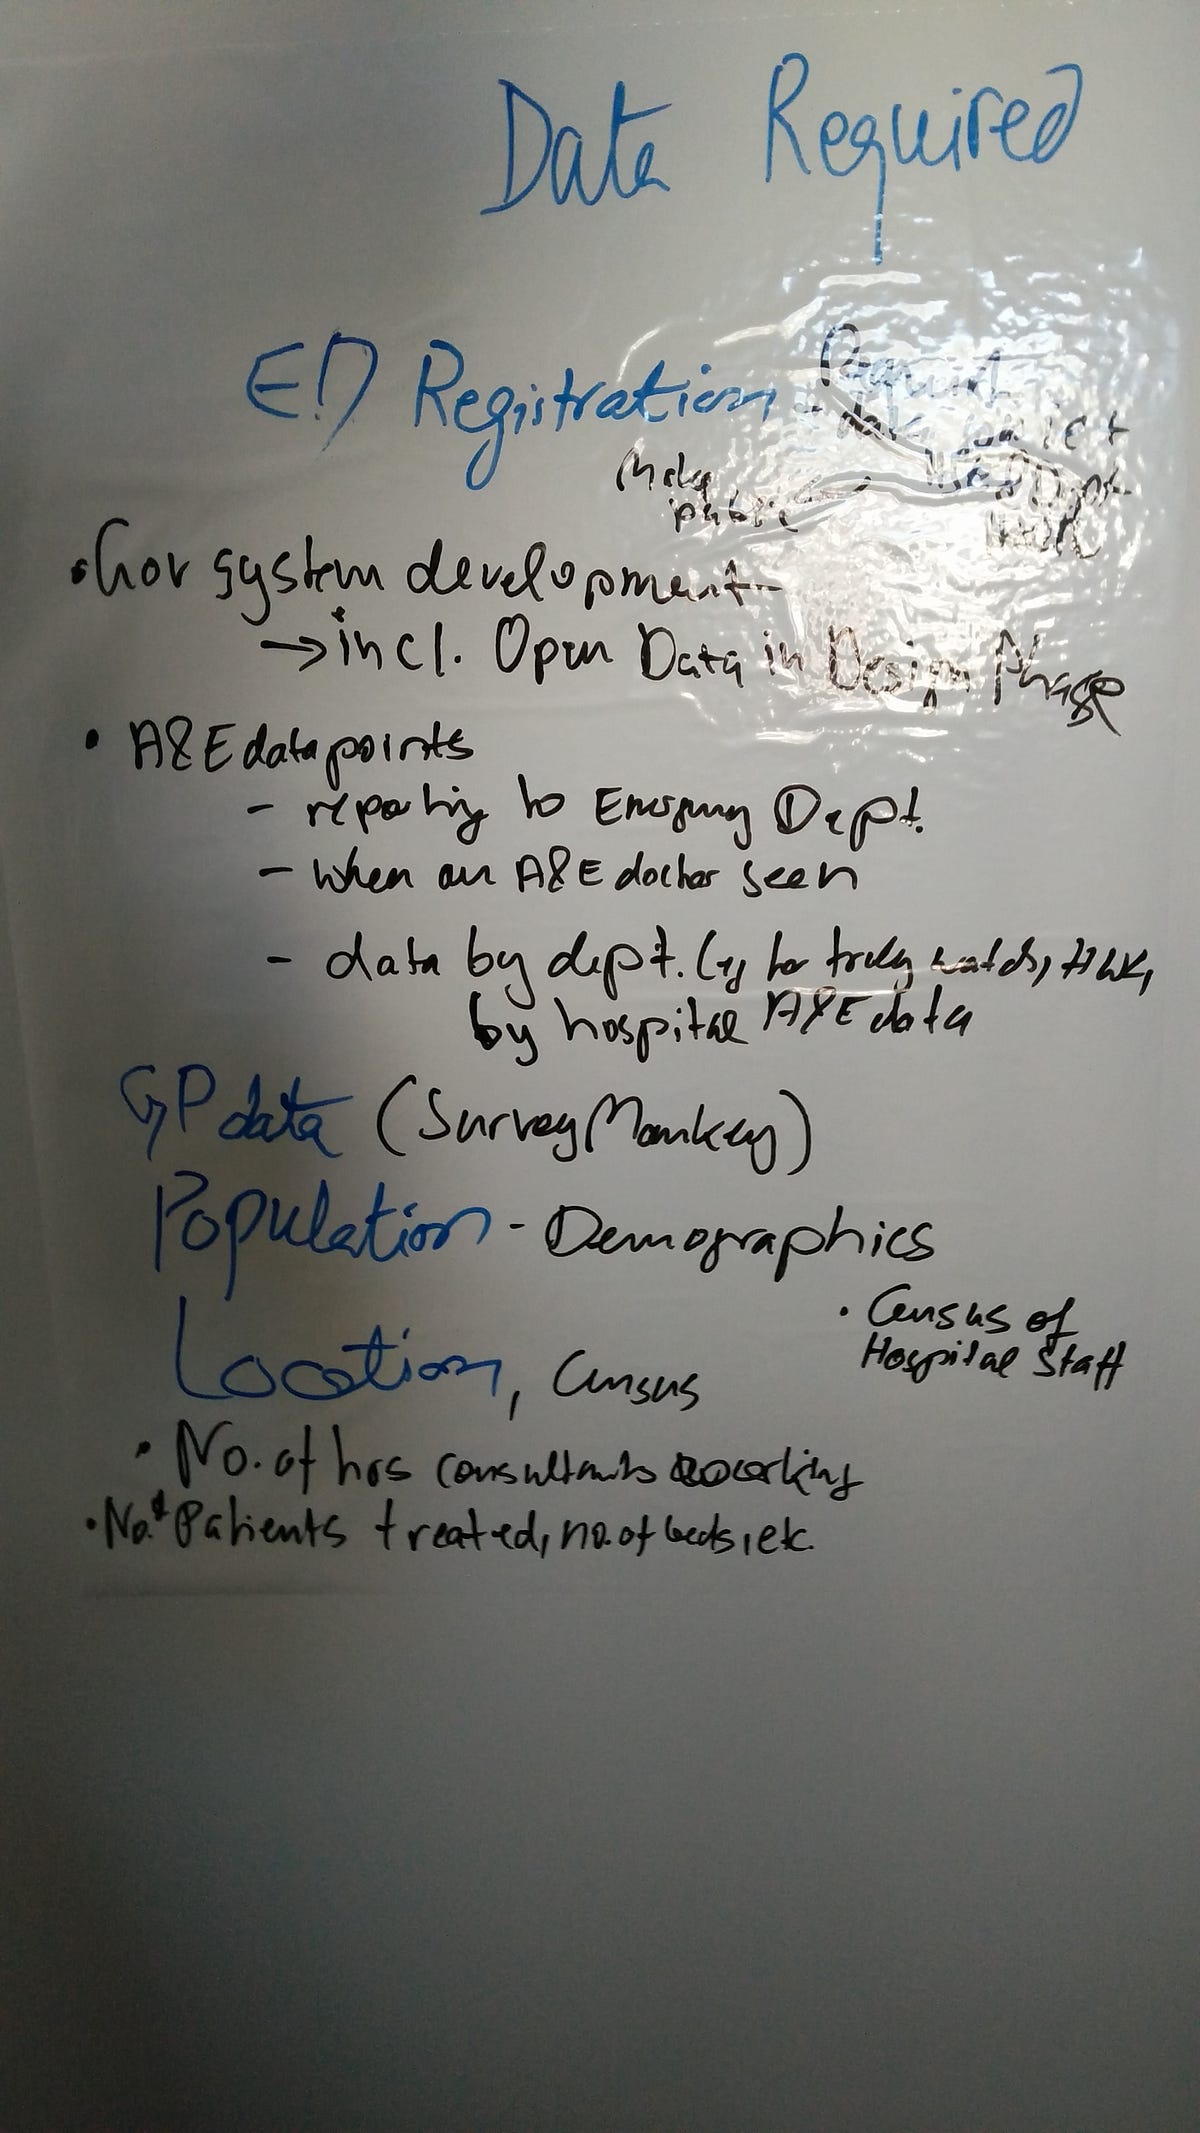 Data Required
ED Registration
Make
public
• Gov system development
→ incl. Open Data in Design Phase
• A&E datapoints
- reporting to Emergency Dept.
- when an A&E doctor seen
- data by dept. (eg for trolley watch,
by hospital A&E data
GP data (SurveyMonkey)
Population - Demographics
• Census of
Hospital Staff
Location, Census
• No. of hrs consultants working
• No. of Patients treated, no. of beds, etc.